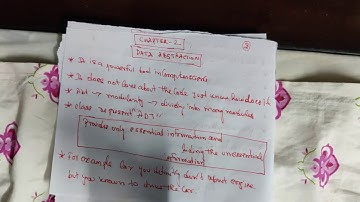 CHAPTER-2
②
DATA ABSTRACTION
* It is a powerful tool in computer science
* It does not care about the code just know how does it
* Adt → modularity → dividing into many modules
* class represent "ADT"
Provides only essential information and
hiding the unessential
information
* For example Car you definitly don't about engine
but you known to drive the car.